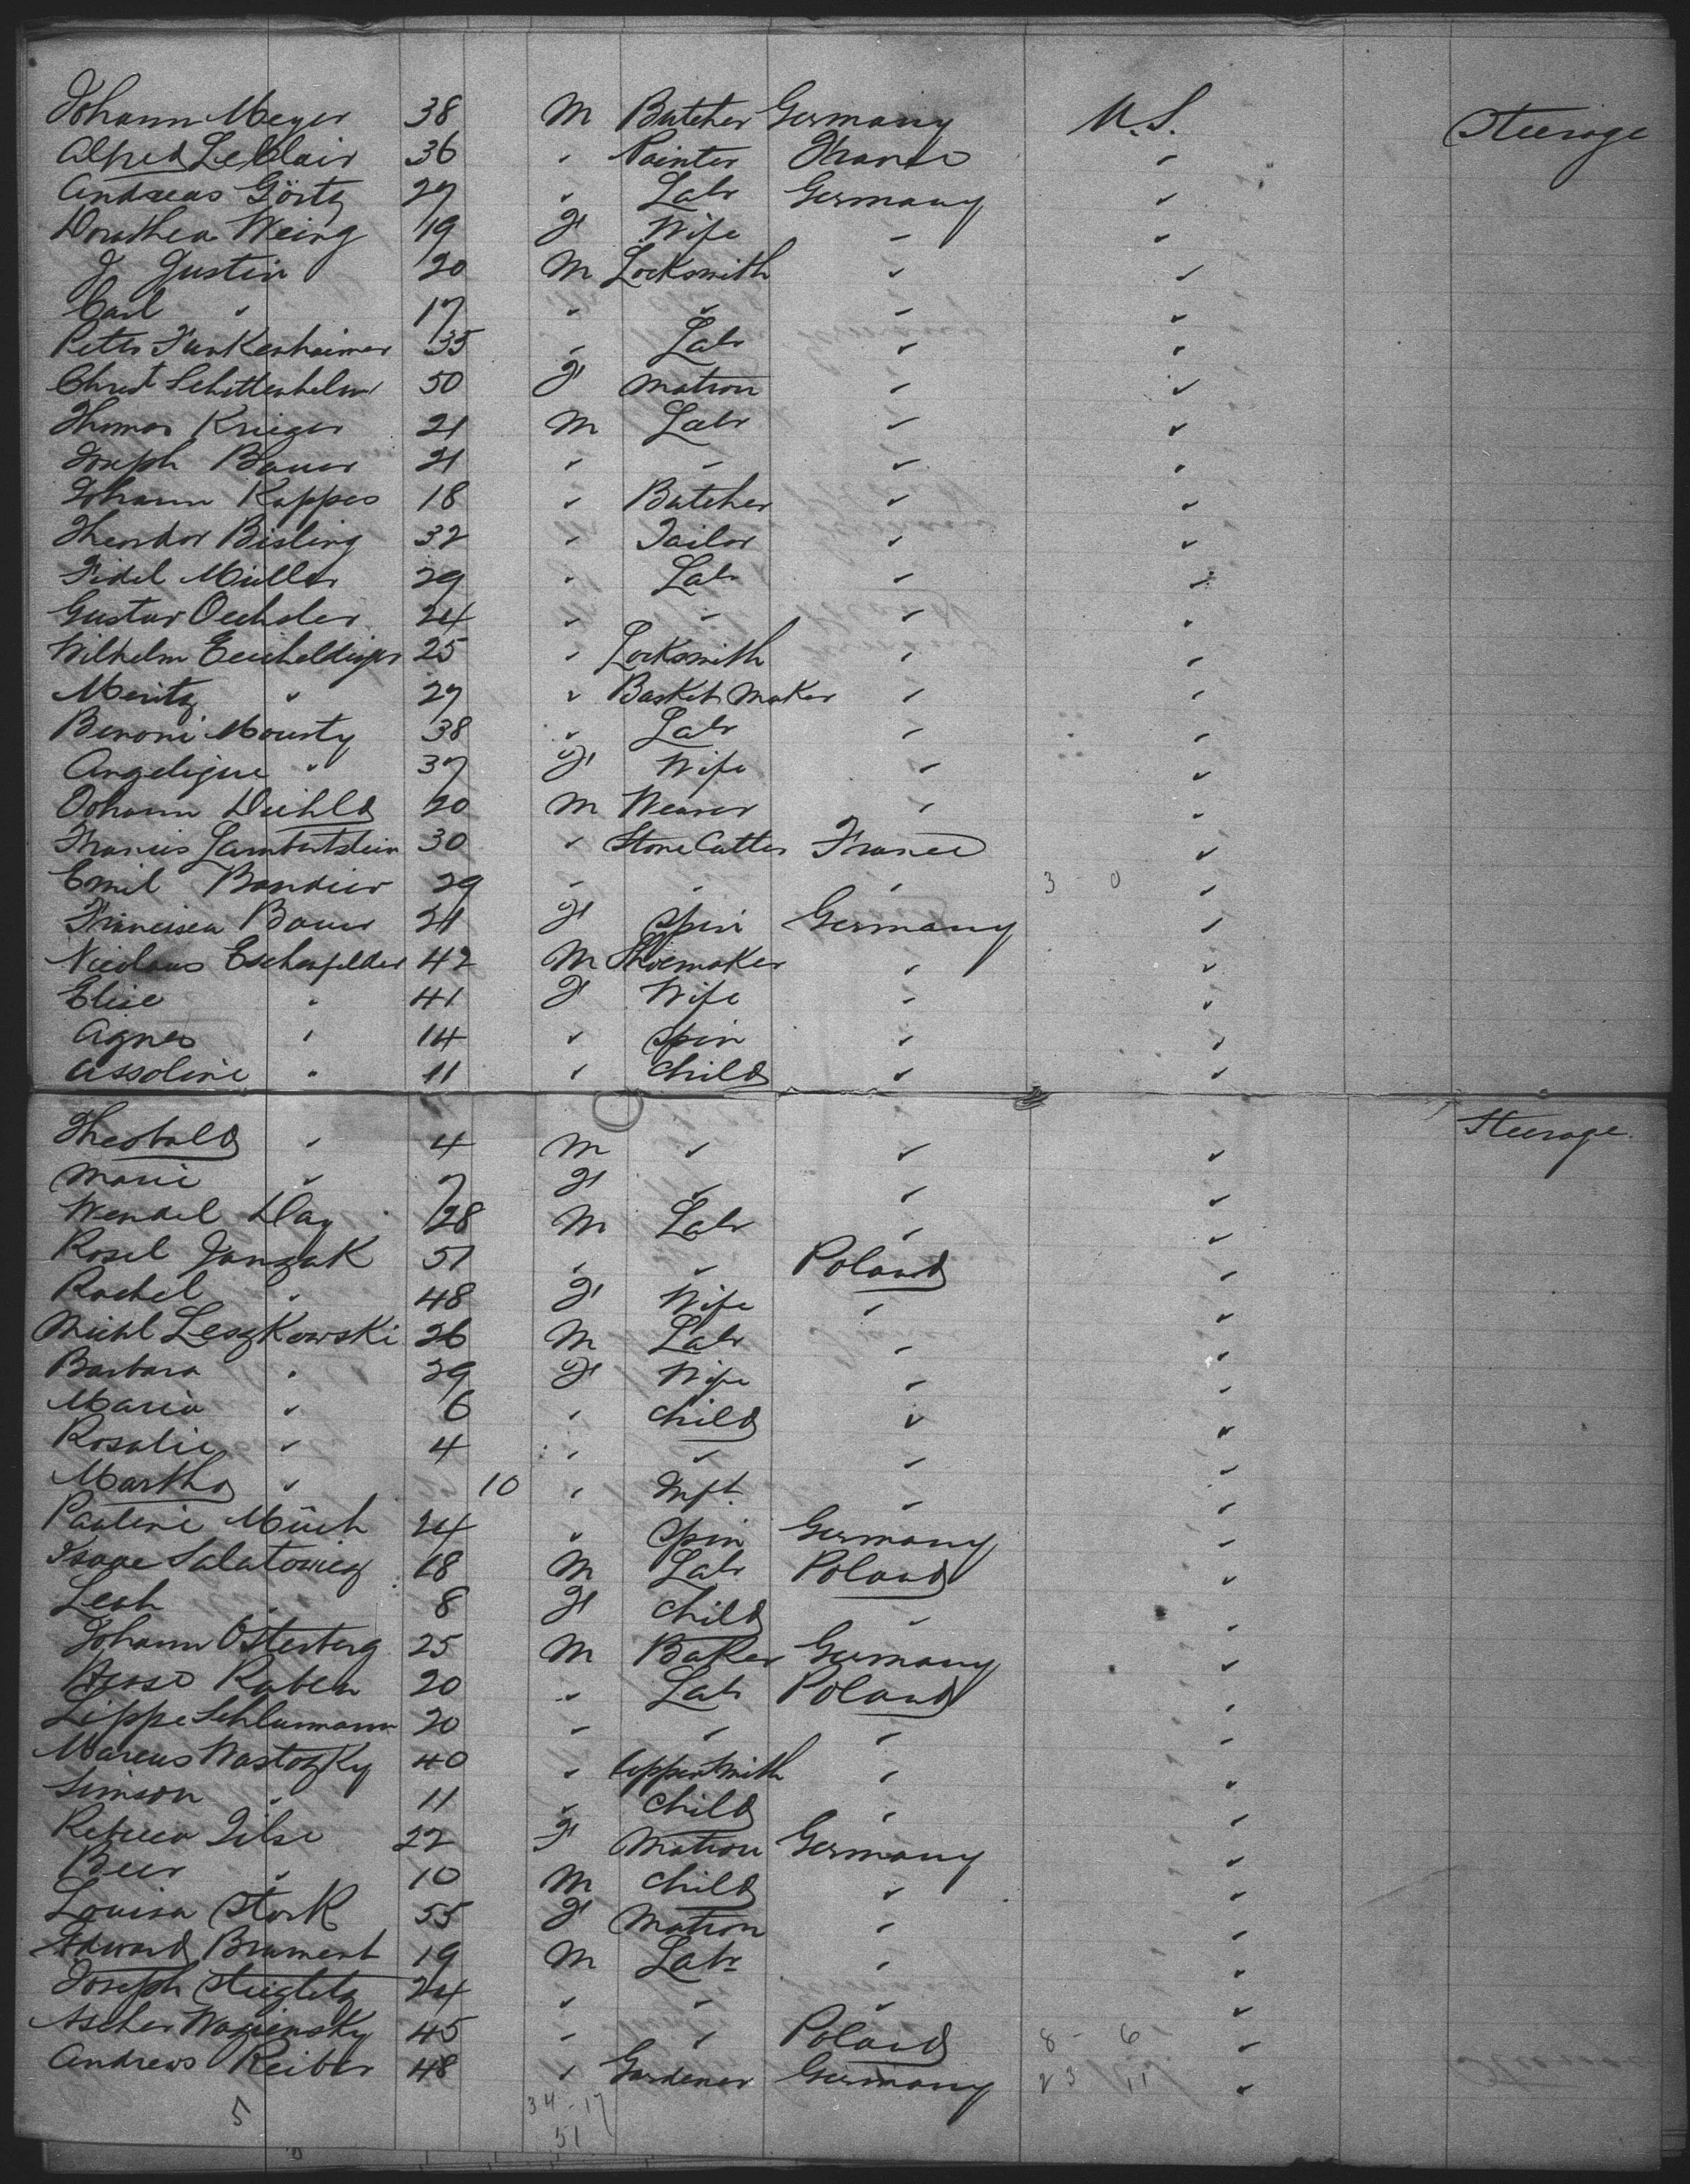 Johann Meyer 38 M Butcher Germany U.S. Steerage
Alfred LeClair 36 " Painter France "
Andreas Görtz 27 " Labr Germany "
Dorothea Weing 19 F Wife " "
J Justin 20 M Locksmith " "
Carl " 17 " " " "
Peter Funkenheimer 35 " Labr " "
Christ Schittenhelm 50 F Matron " "
Thomas Krieger 21 M Labr " "
Joseph Bauer 21 " " " "
Johann Kappes 18 " Butcher " "
Theodor Bisling 32 " Tailor " "
Fidel Müller 29 " Labr " "
Gustav Oechsler 24 " " " "
Wilhelm 25 " Locksmith " "
Moritz " 27 " Basket Maker " "
Benoni Mousty 38 " Labr " "
Angelique " 37 F Wife " "
Johann Diehld 20 M Weaver " "
Francis Lambertstein 30 " Stone Cutter France "
Emil Bandier 29 " " " 3 - 0 "
Francisca Bauer 21 F Spin Germany "
Nicolaus Eschenfelder 42 M Shoemaker " "
Elise " 41 F Wife " "
Agnes " 14 " Spin " "
Assoline " 11 " Child " "
Theobald " 4 M " " " Steerage
Marie " 7 F " " "
Wendel Day 28 M Labr " "
Rosel Janzak 51 " " Poland "
Rachel " 48 F Wife " "
Michl Leszkowski 26 M Labr " "
Barbara " 29 F Wife " "
Maria " 6 " Child " "
Rosalie " 4 " " " "
Martha " 10 " Inft. " "
Pauline Müch 24 " Spin Germany "
Isaac Salatowicz 18 M Labr Poland "
Leah " 8 F Child " "
Johann Osterberg 25 M Baker Germany "
Ruben 20 " Labr Poland "
Lippe Schlurmann 20 " " " "
Marcus Wastozky 40 " Coppersmith " "
Simson " 11 " Child " "
Rebecca Zilse 22 F Matron Germany "
Beer " 10 M Child " "
Louisa Stork 55 F Matron " "
Edward Brument 19 M Labr " "
Joseph Stieglitz 24 " " " "
Ascher Waziensky 45 " " Poland 8 - 6 "
Andrews Reiber 48 " Gardener Germany 23 11 "
5 34 - 17
51